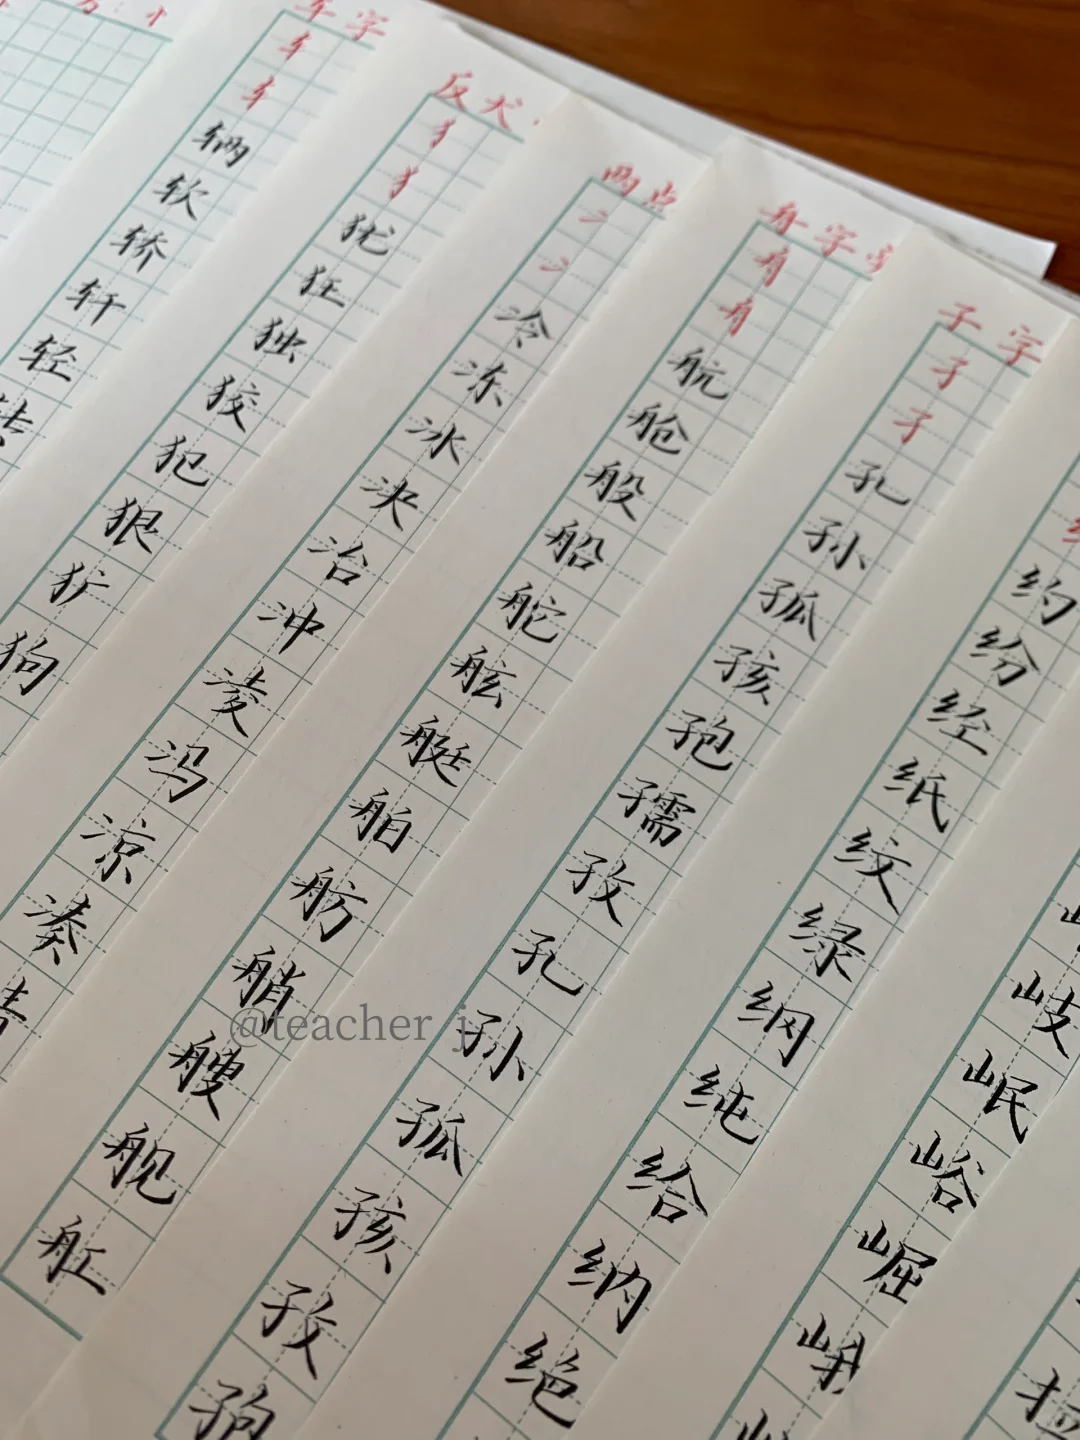 车字
车
车
辆
软
轿
轩
轻
反犬
犭
犭
犹
狂
独
狡
犯
狠
犷
狗
两点
冫
冫
冷
冻
冰
决
冶
冲
凌
冯
凉
凑
舟字旁
舟
舟
航
舱
般
船
舵
舷
艇
舶
舫
艄
艘
舰
舡
子字
孑
孑
孔
孙
孤
孩
孢
孺
孜
孔
孙
孤
孩
孜
孢
约
纷
经
纸
纹
绿
纲
纯
给
纳
绝
岐
岷
峪
崛
峨
@teacher j